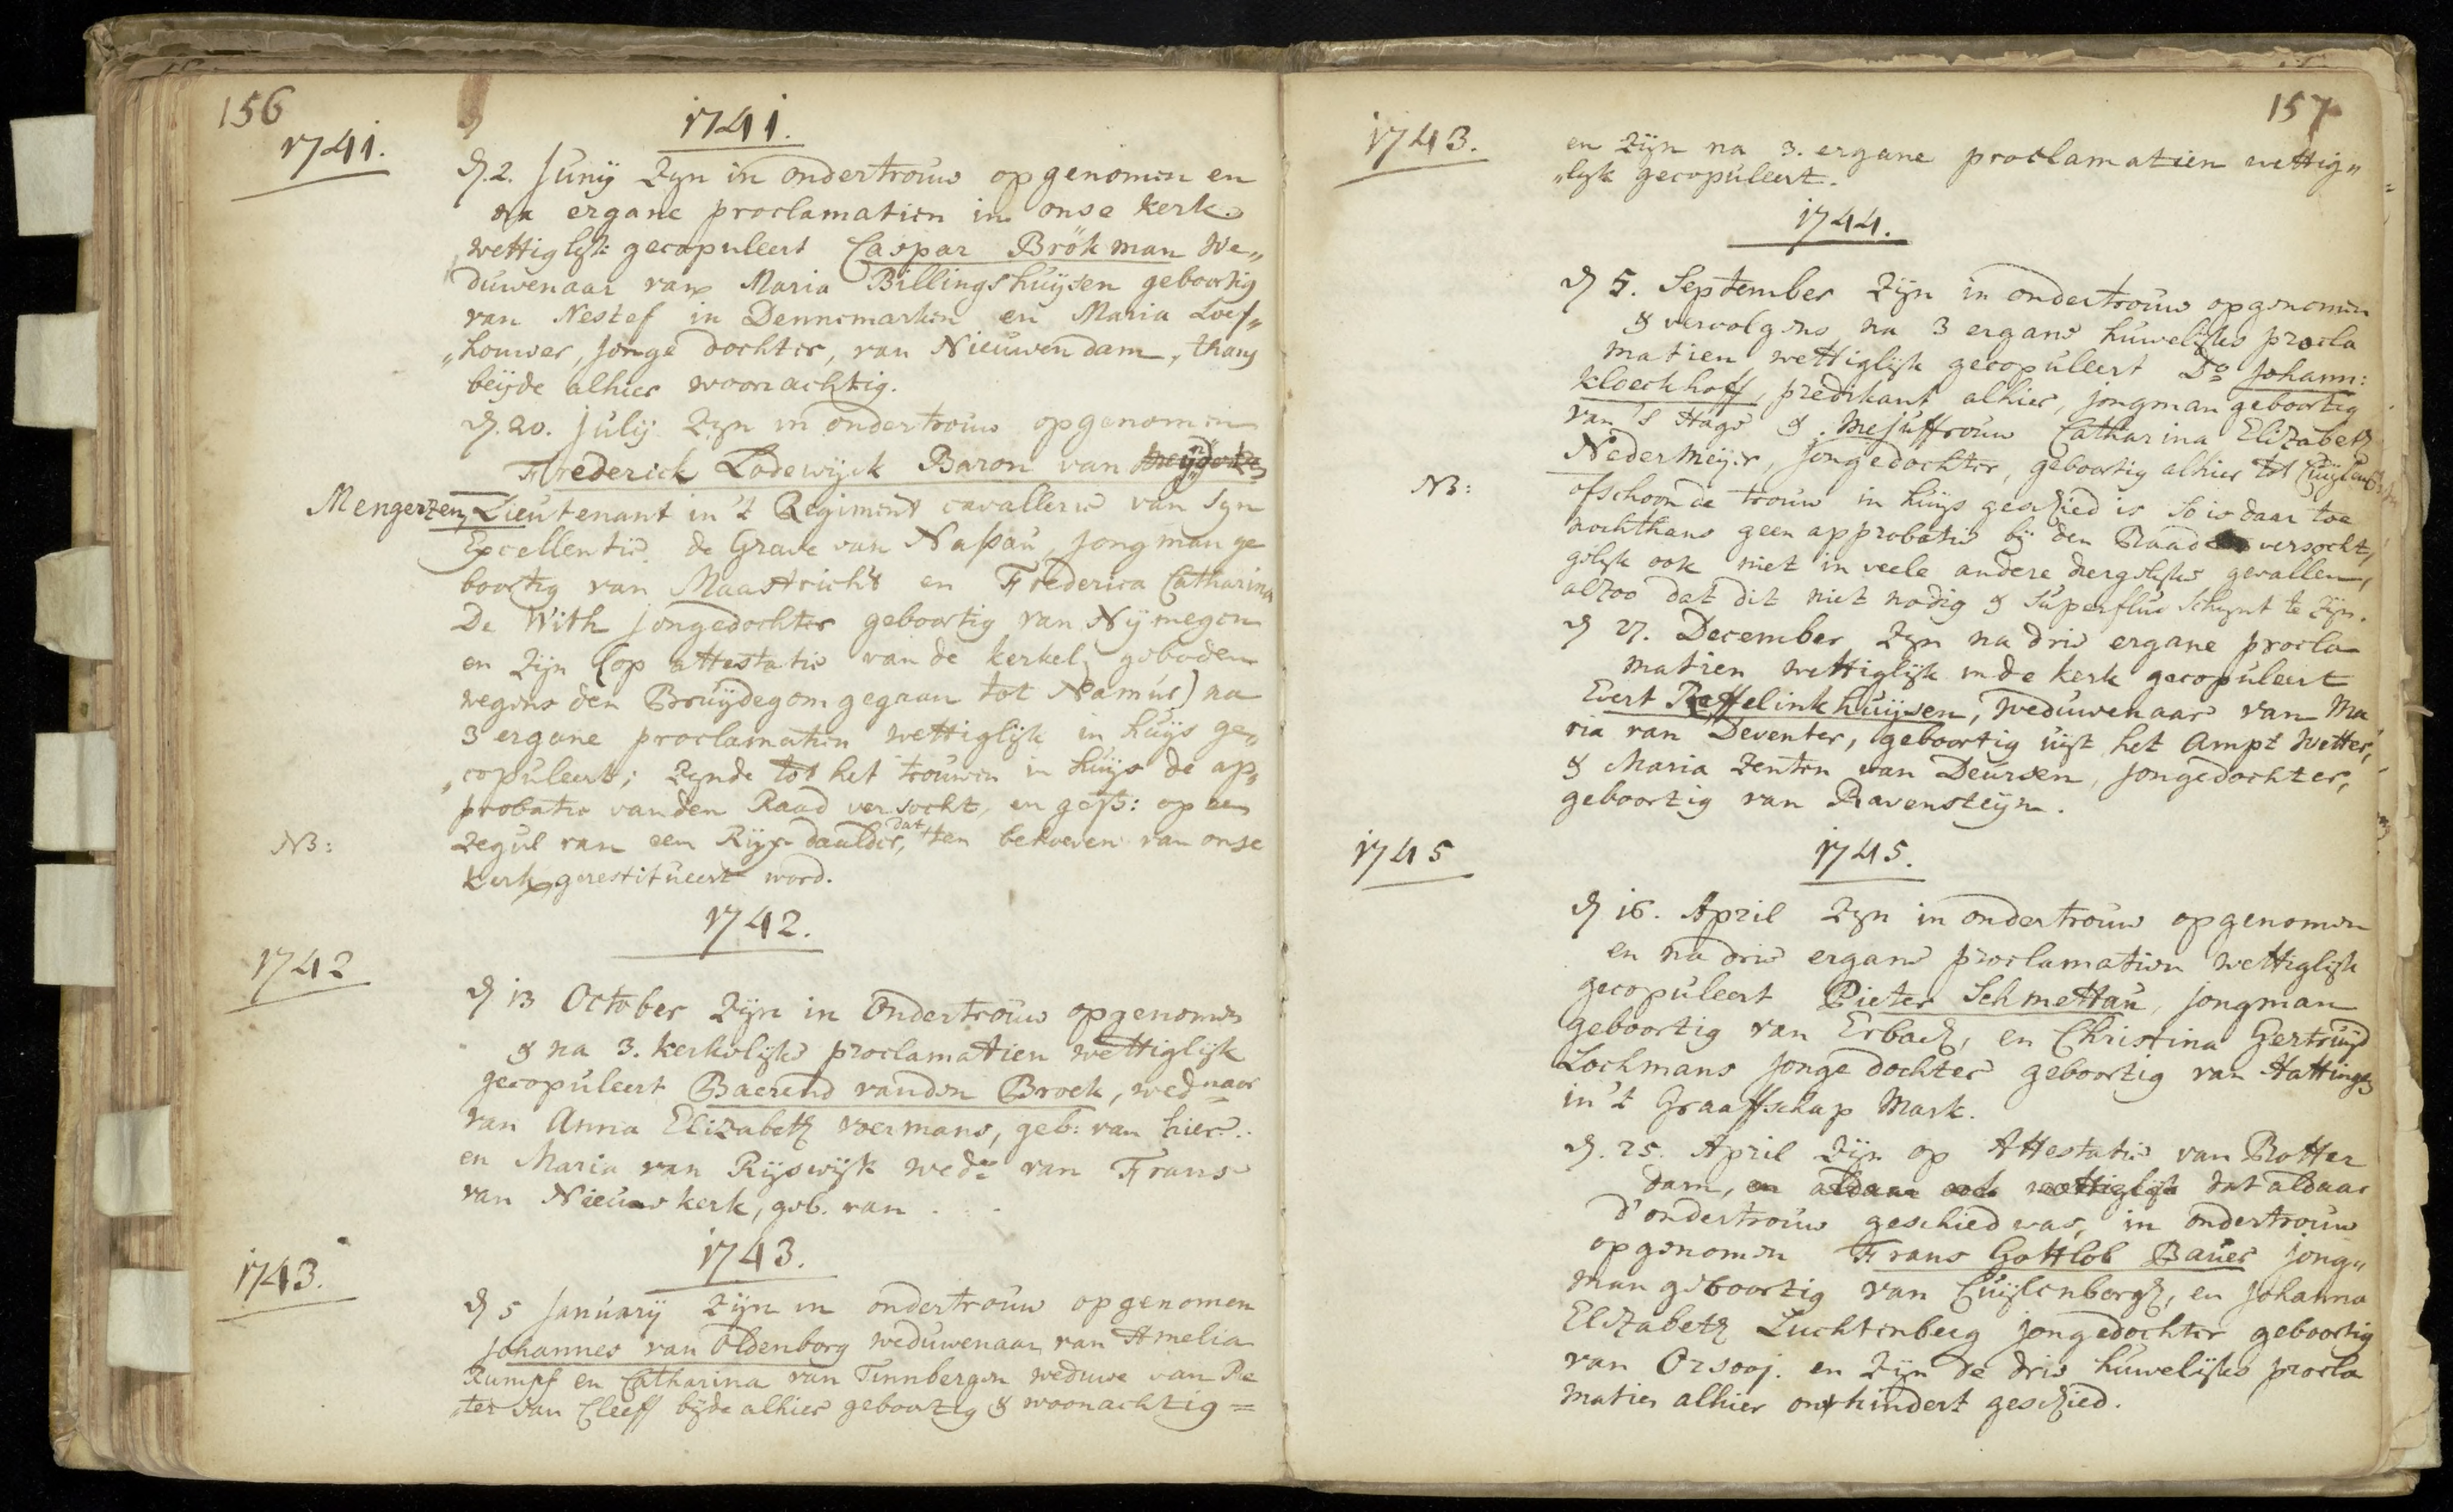 156
1741.
1741.
d. 2. Junij Zyn in ondertrouw opgenomen en
na ergane proclamatien in onse kerk
wettiglyk gecopuleert Caspar Brökman We„
duwenaar van Maria Billingshuysen geboortig
van Nestef in Dennemarken en Maria Loef„
„houwer, jonge dochter, van Nieuwendam, thans
beyde alhier woonachtig.
d. 20. Julij Zyn in ondertrouw opgenomen
Frederick Lodewijck Baron van
Mengerzen, Lieutenant in 't Regiment cavallerie van Syn
Excellentie de Grave van Nassau, jongman ge
boortig van Maastricht en Frederica Catharina
De With jongedochter geboortig van Nymegen
en Zijn (op attestatie van de kerkel: geboden
wegens den Bruydegom gegaan tot Namur) na
3 ergane proclamatien wettiglijk in huys ge„
„copuleert; Zynde tot het trouwen in huys de ap„
probatie van den Raad versocht, en op een
NB: Zegul van een Ryx daalder, dat ten behoeven van onse
kerk gerestitueert word.
1742.
1742
d 13 October Zijn in Ondertrouw opgenomen
& na 3. kerkelijke proclamatien wettiglijk
gecopuleert Baerend vanden Broek, wednaar
van Anna Elizabeth voermans, geb: van hier.
en Maria van Rijswijk wede van Frans
van Nieuwkerk, geb. van . .
1743.
1743.
d 5 January Zijn in ondertrouw opgenomen
Johannes van Oldenborg weduwenaar van Amelia
Rumpf en Catharina van Tinnbergen weduwe van Pe
„ter van Cleeff byde alhier geboortig & woonachtig =
157
1743.
en Zijn na 3. ergane proclamatien wettig„
„lyk gecopuleert.
1744.
d 5. September Zijn in ondertrouw opgenomen
& vervolgens na 3 ergane huwelijks procla
matien wettiglijk gecopuleert Do Johann:
Kloeckhoff, predikant alhier, jongman geboortig
van 's Hage & Mejuffrouw Catharina Elizabeth
Nedermeijer, jongedochter, geboortig alhier tot
NB: ofschoon de trouw in huys geschied is so is daar toe
nochthans geen approbatie by den Raad versocht,
gelyk ook niet in veele andere diergelyke gevallen,
alzoo dat dit niet nodig & superflue schynt te zijn.
d 27. December Zyn na drie ergane procla
matien wettiglijk in de kerk gecopuleert
Evert Reffelinkhuijsen, weduwenaar van Ma
ria van Deventer, geboortig uijt het Ampt Wetter,
& Maria Zenten van Deursen, jongedochter,
geboortig van Ravensteijn.
1745
1745.
d 16. April Zyn in ondertrouw opgenomen
en na drie ergane proclamatien wettiglijk
gecopuleert Pieter Schmettau, jongman
geboortig van Erbach, en Christina Gertruyd
Lochmans jonge dochter geboortig van Hattingen
in 't Graaffschap Mark.
d. 25. April Zijn op Attestatie van Rotter
dam, en aldaar ook wettiglijk dat aldaar
d'ondertrouw geschied was, in ondertrouw
opgenomen Frans Gottlob Bauer jong„
man geboortig van Cuijlenborgh, en Johanna
Elizabeth Luchtenberg jongedochter geboortig
van Orsooj. en Zijn de drie huwelijks procla
matien alhier onverhindert geschied.